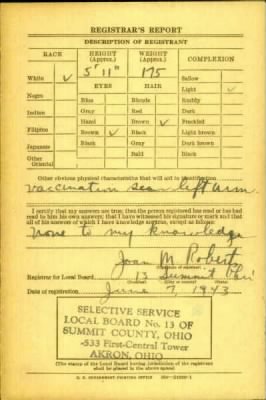 REGISTRAR'S REPORT
DESCRIPTION OF REGISTRANT
RACE HEIGHT (Approx.) WEIGHT (Approx.) COMPLEXION
White ✓ 5' 11" 175 Sallow
EYES HAIR Light ✓
Negro Blue Blonde Ruddy
Indian Gray Red Dark
Filipino Hazel Brown ✓ Freckled
Brown ✓ Black Light brown
Japanese Black Gray Dark brown
Other Oriental Bald Black
Other obvious physical characteristics that will aid in identification
vaccination scar left arm.
I certify that my answers are true; that the person registered has read or has had
read to him his own answers; that I have witnessed his signature or mark and that
all of his answers of which I have knowledge are true, except as follows:
None to my knowledge
Joan M Robert
Registrar for Local Board 13 Summit
Date of registration June 7, 1943
SELECTIVE SERVICE
LOCAL BOARD No. 13 OF
SUMMIT COUNTY, OHIO
-533 First-Central Tower
AKRON, OHIO
(The stamp of the Local Board having jurisdiction of the registrant
shall be placed in the above space)
U. S. GOVERNMENT PRINTING OFFICE